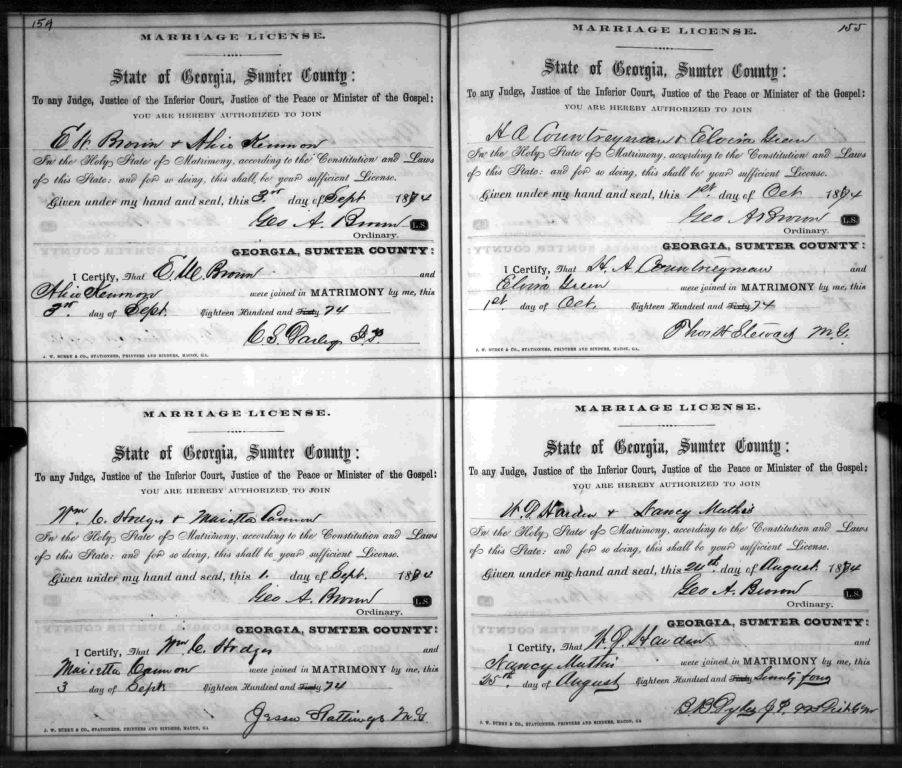 154
MARRIAGE LICENSE.
State of Georgia, Sumter County:
To any Judge, Justice of the Inferior Court, Justice of the Peace or Minister of the Gospel:
YOU ARE HEREBY AUTHORIZED TO JOIN
E W Brown & Alice Kennon
In the Holy State of Matrimony, according to the Constitution and Laws
of this State: and for so doing, this shall be your sufficient License.
Given under my hand and seal, this 3rd day of Sept 1874
Geo A. Brown L.S.
Ordinary.
GEORGIA, SUMTER COUNTY:
I Certify, That E. W. Brown and
Alice Kennon were joined in MATRIMONY by me, this
3rd day of Sept. Eighteen Hundred and Sixty 74
C S J.P.
J. W. BURKE & CO., STATIONERS, PRINTERS AND BINDERS, MACON, GA.
MARRIAGE LICENSE.
State of Georgia, Sumter County:
To any Judge, Justice of the Inferior Court, Justice of the Peace or Minister of the Gospel:
YOU ARE HEREBY AUTHORIZED TO JOIN
Wm C. Hodges & Marietta Cannon
In the Holy State of Matrimony, according to the Constitution and Laws
of this State: and for so doing, this shall be your sufficient License.
Given under my hand and seal, this 1. day of Sept. 1874
Geo A. Brown L.S.
Ordinary.
GEORGIA, SUMTER COUNTY:
I Certify, That Wm C. Hodges and
Marietta Cannon were joined in MATRIMONY by me, this
3 day of Sept Eighteen Hundred and Sixty 74
Jesse Stallings M.G.
J. W. BURKE & CO., STATIONERS, PRINTERS AND BINDERS, MACON, GA
155
MARRIAGE LICENSE.
State of Georgia, Sumter County:
To any Judge, Justice of the Inferior Court, Justice of the Peace or Minister of the Gospel:
YOU ARE HEREBY AUTHORIZED TO JOIN
H A Countreyman & Elvira Green
In the Holy State of Matrimony, according to the Constitution and Laws
of this State: and for so doing, this shall be your sufficient License.
Given under my hand and seal, this 1st day of Oct 1874
Geo A Brown L.S.
Ordinary.
GEORGIA, SUMTER COUNTY:
I Certify, That H. A Countreyman and
Elvira Green were joined in MATRIMONY by me, this
1st. day of Oct. Eighteen Hundred and Sixty 74
Thos H Stewart M.G.
J. W. BURKE & CO., STATIONERS, PRINTERS AND BINDERS, MACON, GA.
MARRIAGE LICENSE.
State of Georgia, Sumter County:
To any Judge, Justice of the Inferior Court, Justice of the Peace or Minister of the Gospel:
YOU ARE HEREBY AUTHORIZED TO JOIN
Harden & Nancy Mathis
In the Holy State of Matrimony, according to the Constitution and Laws
of this State: and for so doing, this shall be your sufficient License.
Given under my hand and seal, this 24th. day of August 1874
Geo A. Brown L.S.
Ordinary.
GEORGIA, SUMTER COUNTY:
I Certify, That Harden and
Nancy Mathis were joined in MATRIMONY by me, this
25th. day of August Eighteen Hundred and Sixty Seventy four
J.P.
J. W. BURKE & CO., STATIONERS, PRINTERS AND BINDERS, MACON, GA.